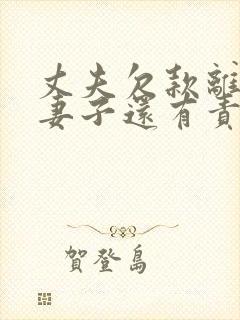 丈夫欠款離
妻子還有責
賀登島